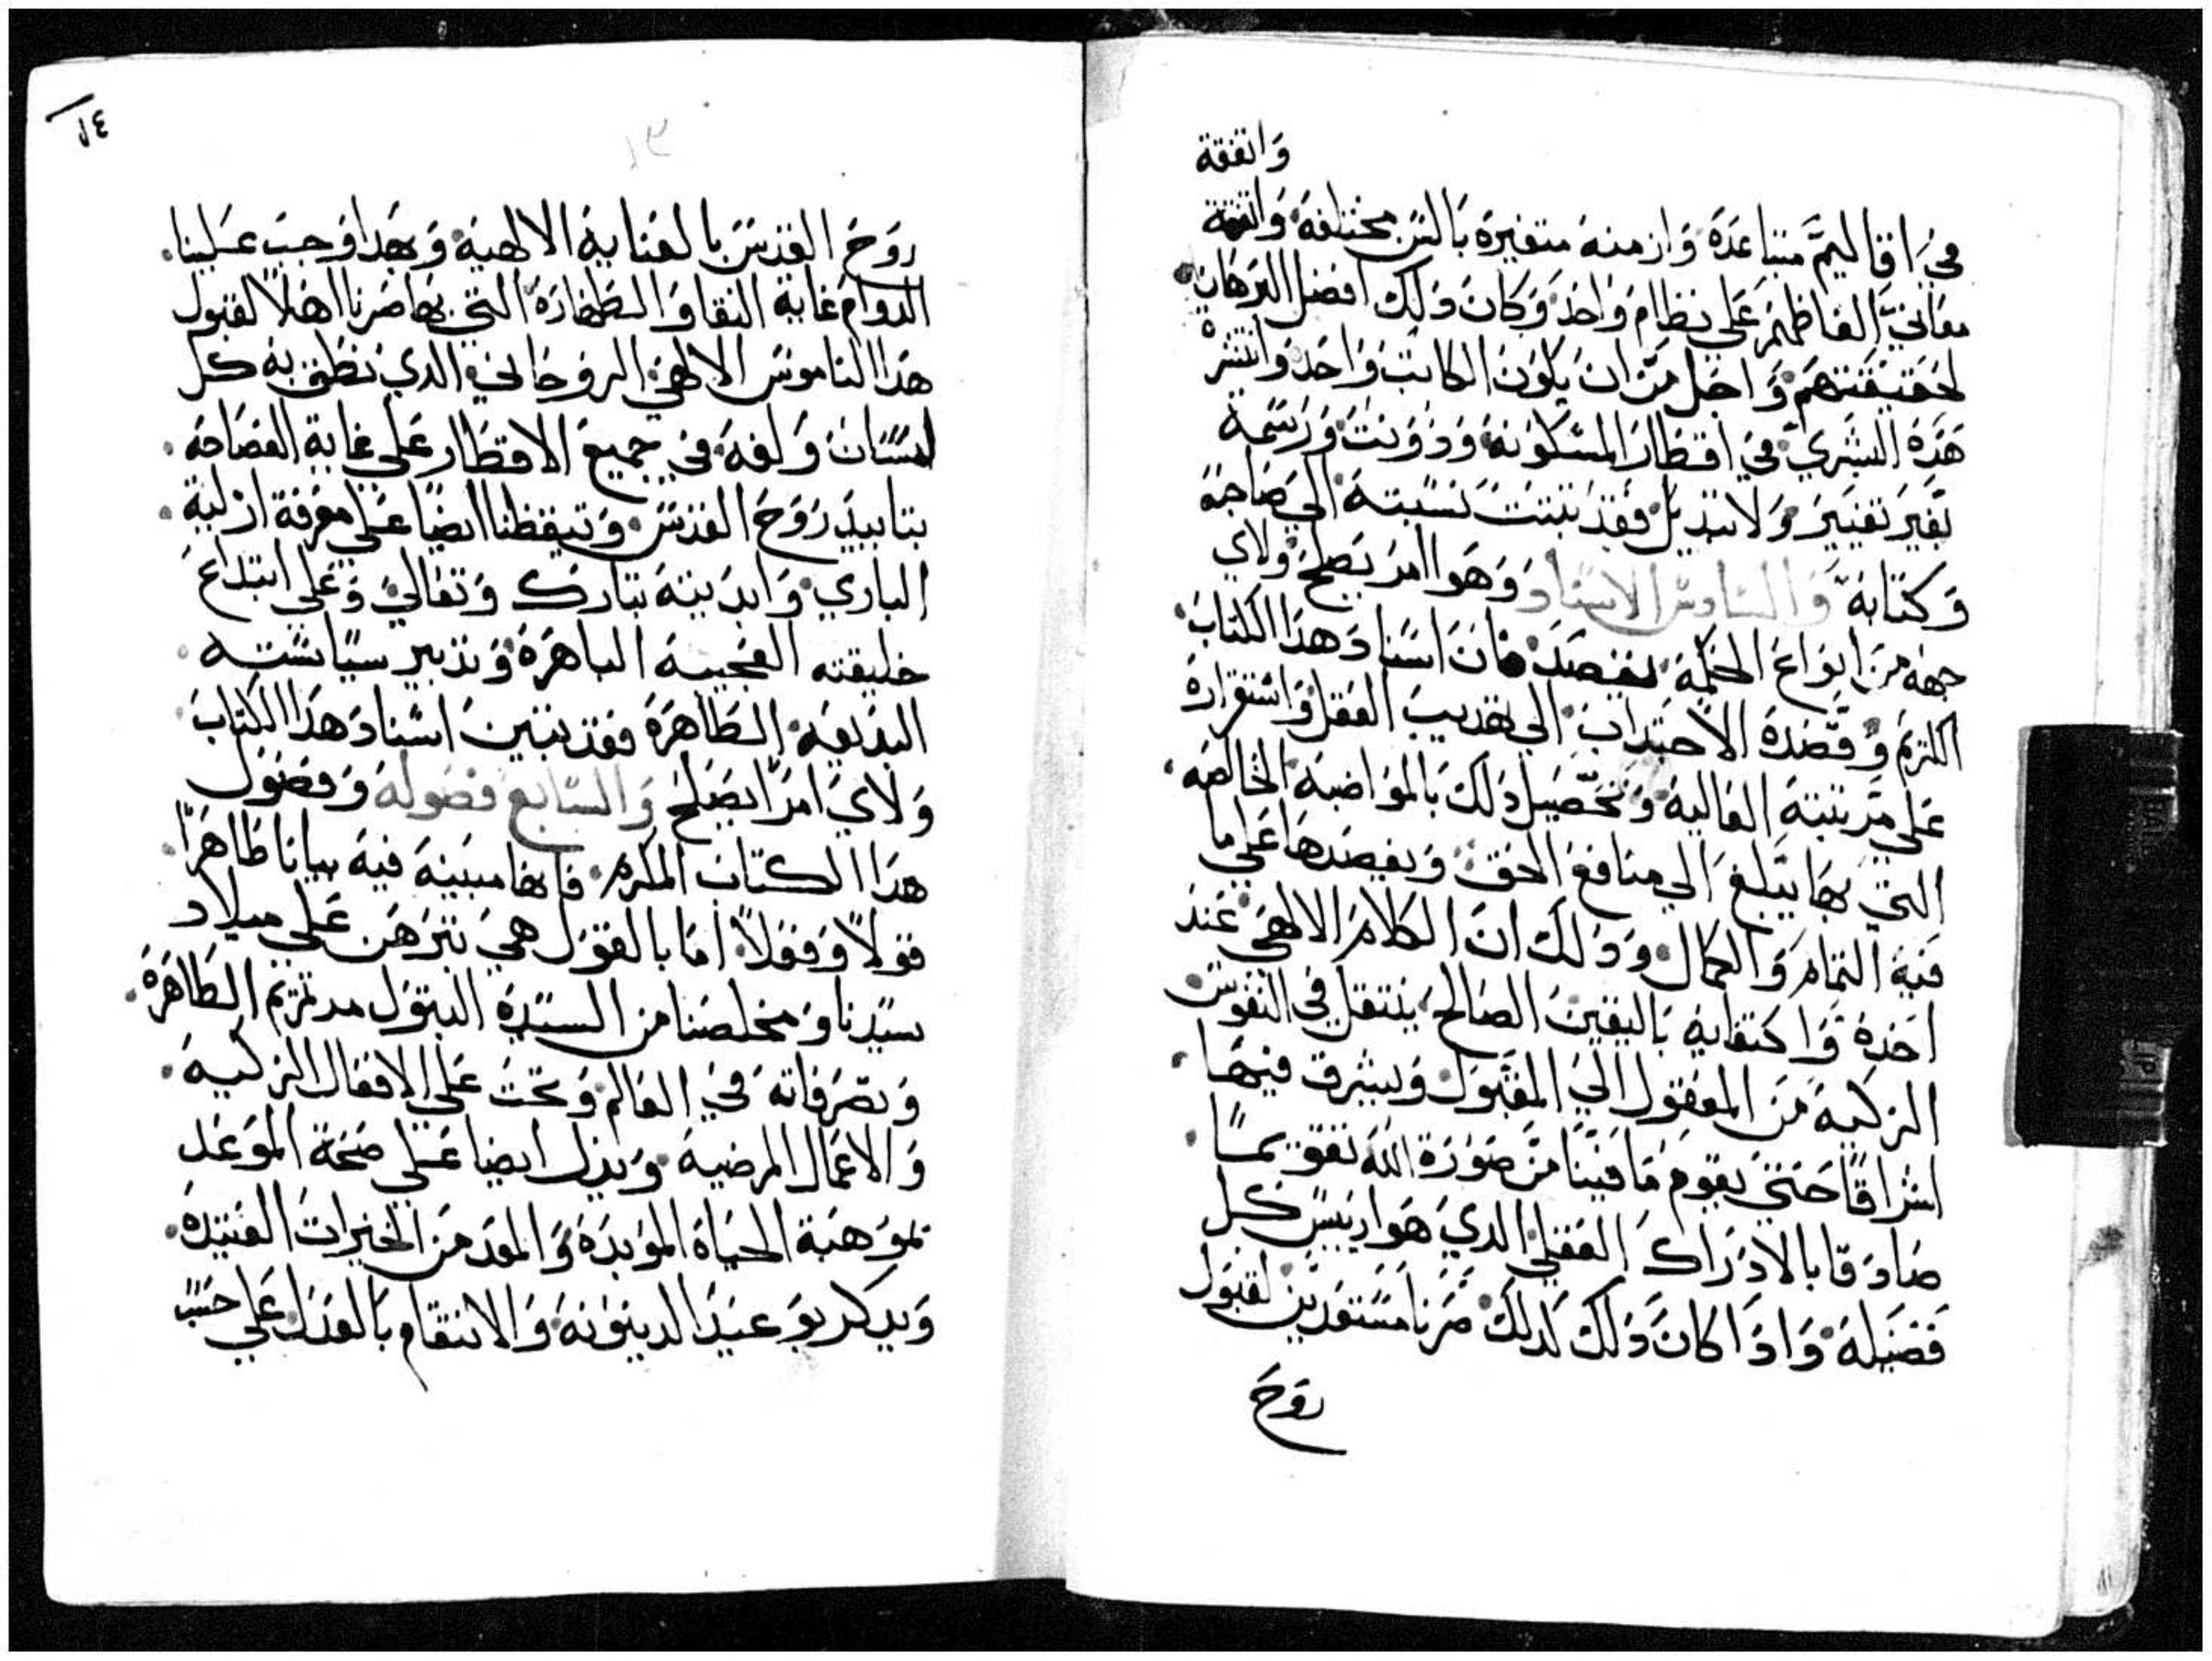 واتفقة
في اقاليم متباعدة وازمنه متغيرة بالسن مختلفة واتفقة
معاني الفاظهم علي نظام واحد وكان دلك افضل البرهان
لحقيقتهم واجل من ان يكون الكاتب واحد وانتشرة
هده البشري في اقطار المسكونه ودونت ورسمة
بغير تغيير ولا تبديل فقد تبتت نسبته الي صاحبة
وكتابة والسادس الاسناد وهوا امر يصلح ولاي
جهه من انواع الحكمة يقصد فان اسناد هدا الكتاب
الكريم وقصده الاجتداب الي تهديب العقل واستقراره
علي مرتبته العالية وتحصيل دلك بالمواضبة الخالصه
التي بها يبلغ الي منافع الحق ويقصدها علي ما
فية التمام والكمال ودلك ان الكلام الالهي عند
اخدة واكتفاية باليقين الصالح ينتقل في النفوس
الزكية من المعقول الي المقبول ويشرق فيها
اشراقا حتي يقوم ما فينا من صورة الله تقويما
صادقا بالادراك العقلي الدي هوا رييس كل
فضيلة وادا كان دلك لدلك صرنا مستعدين لقبول
روح
١٤
١٣
روح القدس بالعناية الالهية وبهدا وجب علينا
الدوام غاية النقا والطهارة التي بها صرنا اهلا لقبول
هدا الناموس الالهي الروحاني الدي نطق به كل
لسان ولغه في جميع الاقطار علي غاية الفصاحة
بتاييد روح القدس وتيقظنا ايضا علي معرفة ازلية
الباري وابديته تبارك وتعالي وعلي ابتداع
خليقته العجيبة الباهرة وتدبير سياسته
البديعه الطاهرة فقد تبين اسناد هدا الكتاب
ولاي امرا يصلح والسابع فصوله وفصول
هدا الكتاب المكرم فانها مبينة فيه بيانا ظاهرا
قولا وفعلا اما بالقول هي تبرهن علي ميلاد
سيدنا ومخلصنا من السيدة البتول مرتمريم الطاهرة
وتصرفاته في العالم وتحت علي الافعال الزكية
والاعمال المرضية وتدل ايضا علي صحة الموعد
بموهبة الحياة الموبدة والمعد من الخيرات العتيدة
ويدكر بوعيد الدينونه والانتقام بالعدل علي حسب